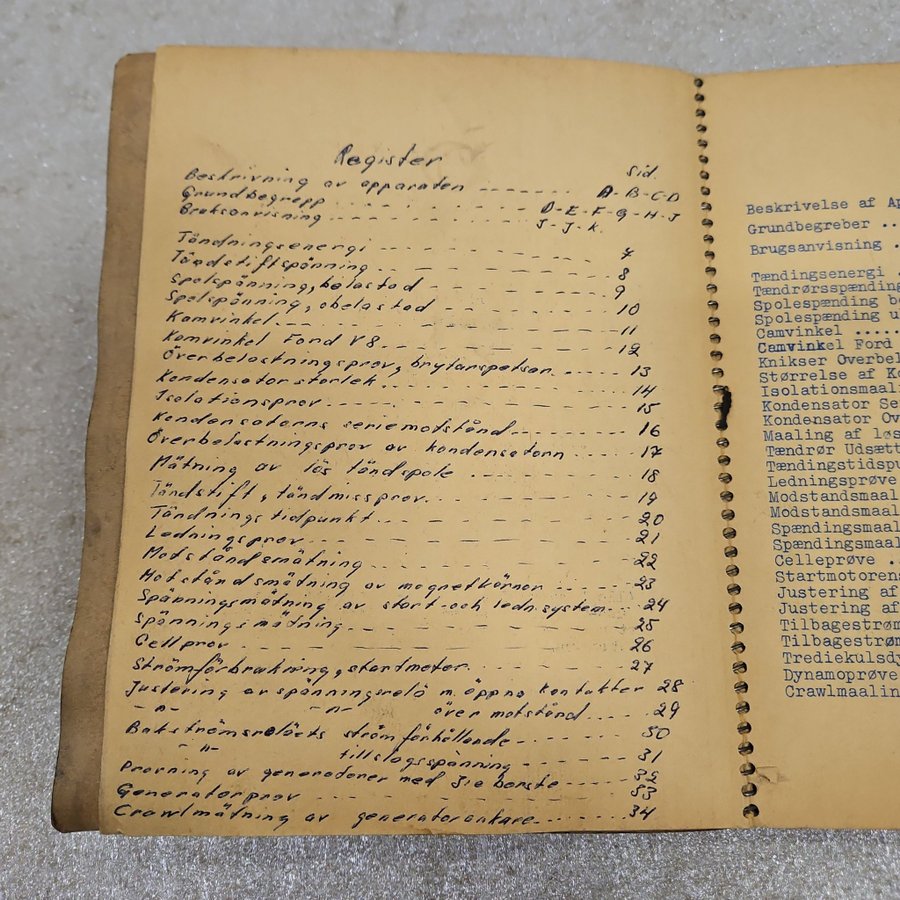 Register
Sid.
Beskrivning av apparaten ------- A-B-C-D
Grundbegrepp -------- D-E-F-G-H-J
Bruksanvisning -------- J-J-K.
Tändningsenergi ---- 7
Tändstiftspänning ---- 8
Spolspänning, belastad ---- 9
Spolspänning, obelastad ---- 10
Kamvinkel ---- 11
Kamvinkel Ford V8. ---- 12
Överbelastningsprov, brytarspetsar. ---- 13
Kondensatorstorlek ---- 14
Isolationsprov ---- 15
Kondensatorns seriemotstånd ---- 16
Överbelastningsprov av kondensatorn ---- 17
Mätning av lös tändspole ---- 18
Tändstift, tändmissprov. ---- 19
Tändningstidpunkt ---- 20
Ledningsprov ---- 21
Motståndsmätning ---- 22
Motståndsmätning av magnetkärnor ---- 23
Spänningsmätning av start-och ledn.system --- 24
Spänningsmätning ---- 25
Cellprov ---- 26
Strömförbrukning, startmotor. ---- 27
Justering av spänningsrelä m. öppna kontakter 28
-"- -"- över motstånd .... 29
Bakströmsreläets ström förhållande ---- 30
-"- tillslagsspänning ---- 31
Provning av generatorer med 3ie borste ---- 32
Generatorprov ---- 33
Crawlmätning av generatorankare ---- 34
Beskrivelse af Ap
Grundbegreber ..
Brugsanvisning .
Tændingsenergi .
Tændrørsspænding
Spolespænding be
Spolespænding u
Camvinkel .....
Camvinkel Ford
Knikser Overbel
Størrelse af Ko
Isolationsmaali
Kondensator Se
Kondensator Ov
Maaling af løs
Tændrør Udsætt
Tændingstidspu
Ledningsprøve
Modstandsmaal
Modstandsmaal
Spændingsmaal
Spændingsmaal
Celleprøve ..
Startmotorens
Justering af
Justering af
Tilbagestrøm
Tilbagestrøm
Trediekulsdy
Dynamoprøve
Crawlmaalin